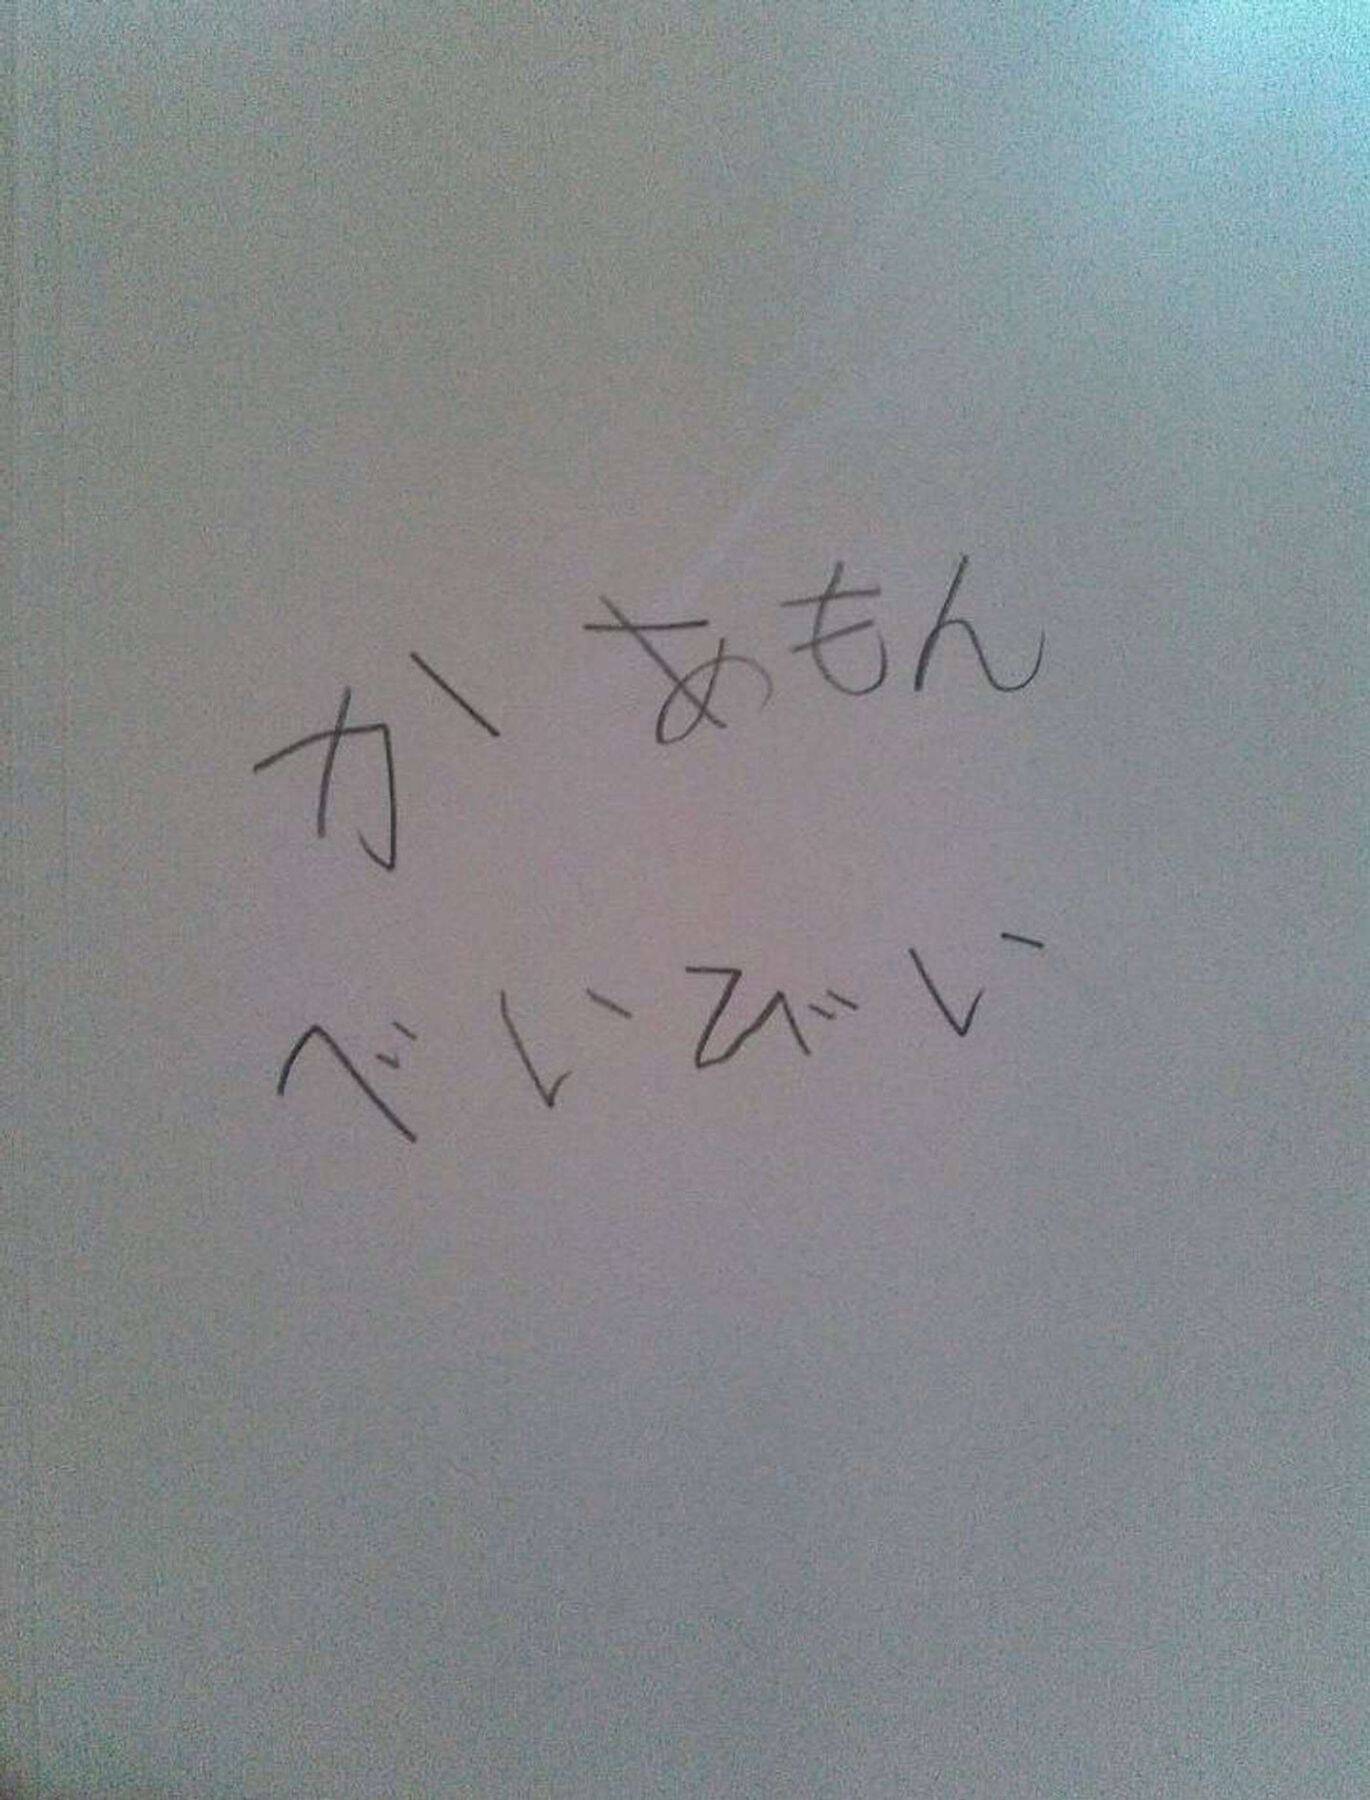 かあもん
べいびい